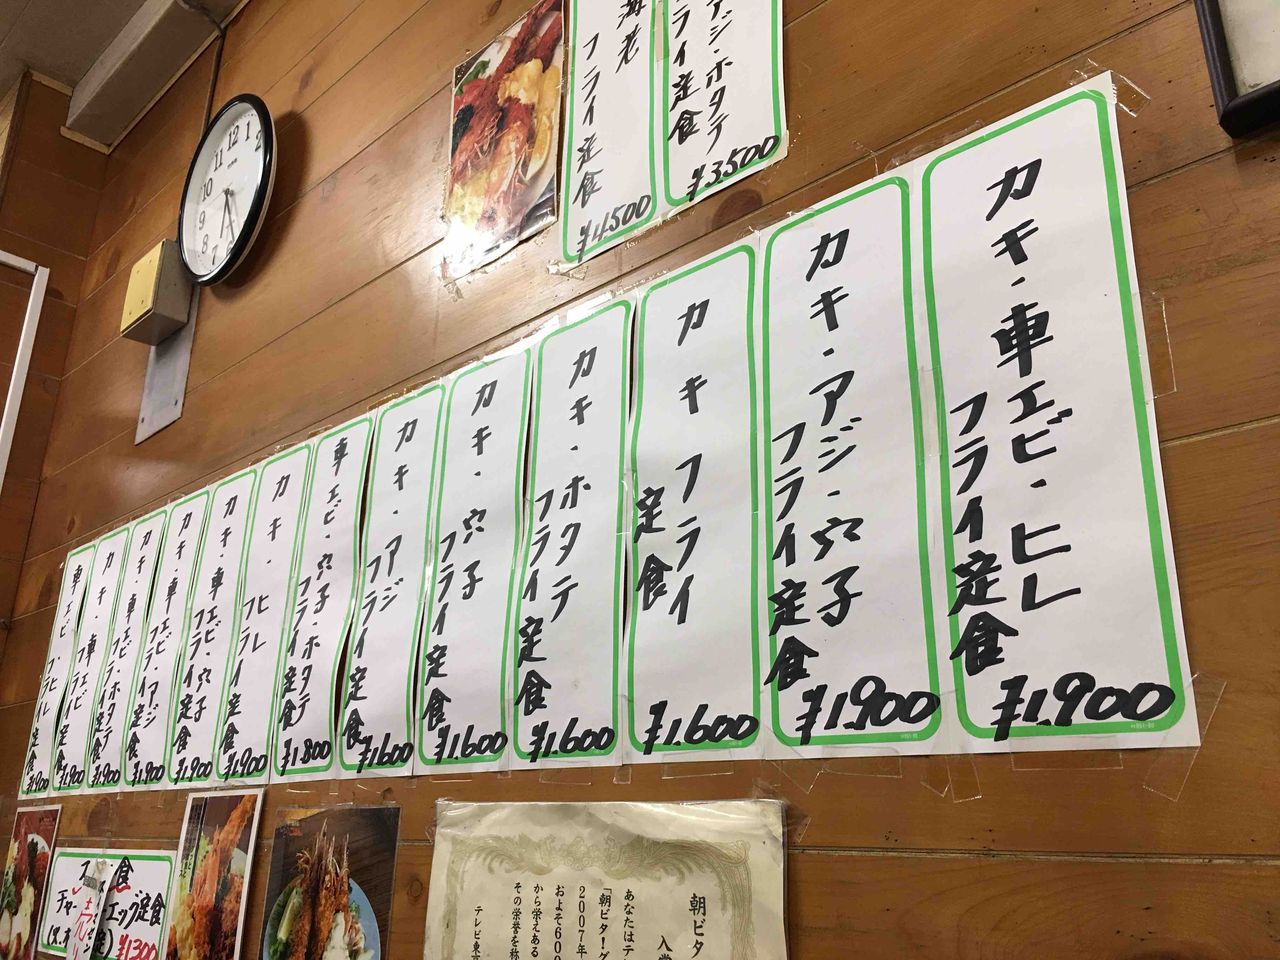 アジ・ホタテ
フライ定食
¥3500
海老
フライ定食
¥4500
カキ・車エビ・ヒレ
フライ定食
¥1.900
カキ・アジ・穴子
フライ定食
¥1.900
カキフライ
定食
¥1.600
カキ・ホタテ
フライ定食
¥1.600
カキ・穴子
フライ定食
¥1.600
カキ・アジ
フライ定食
¥1600
車エビ・穴子・ホタテ
フライ定食
¥1.800
カキ・ヒレ
フライ定食
¥1.900
カキ・車エビ・穴子
フライ定食
¥1.900
カキ・車エビ・アジ
フライ定食
¥1.900
カキ・車エビ・ホタテ
フライ定食
¥1.900
カキ・車エビ
フライ定食
¥1.900
車エビ・ヒレ
フライ定食
¥1.900
12
1
2
11
10
9
8
7
エッグ定食
¥1300
朝ビタ
入賞
あなたはテレ
「朝ビタ!グ
2007年
およそ600
から栄えある
その栄誉を称
テレビ東京